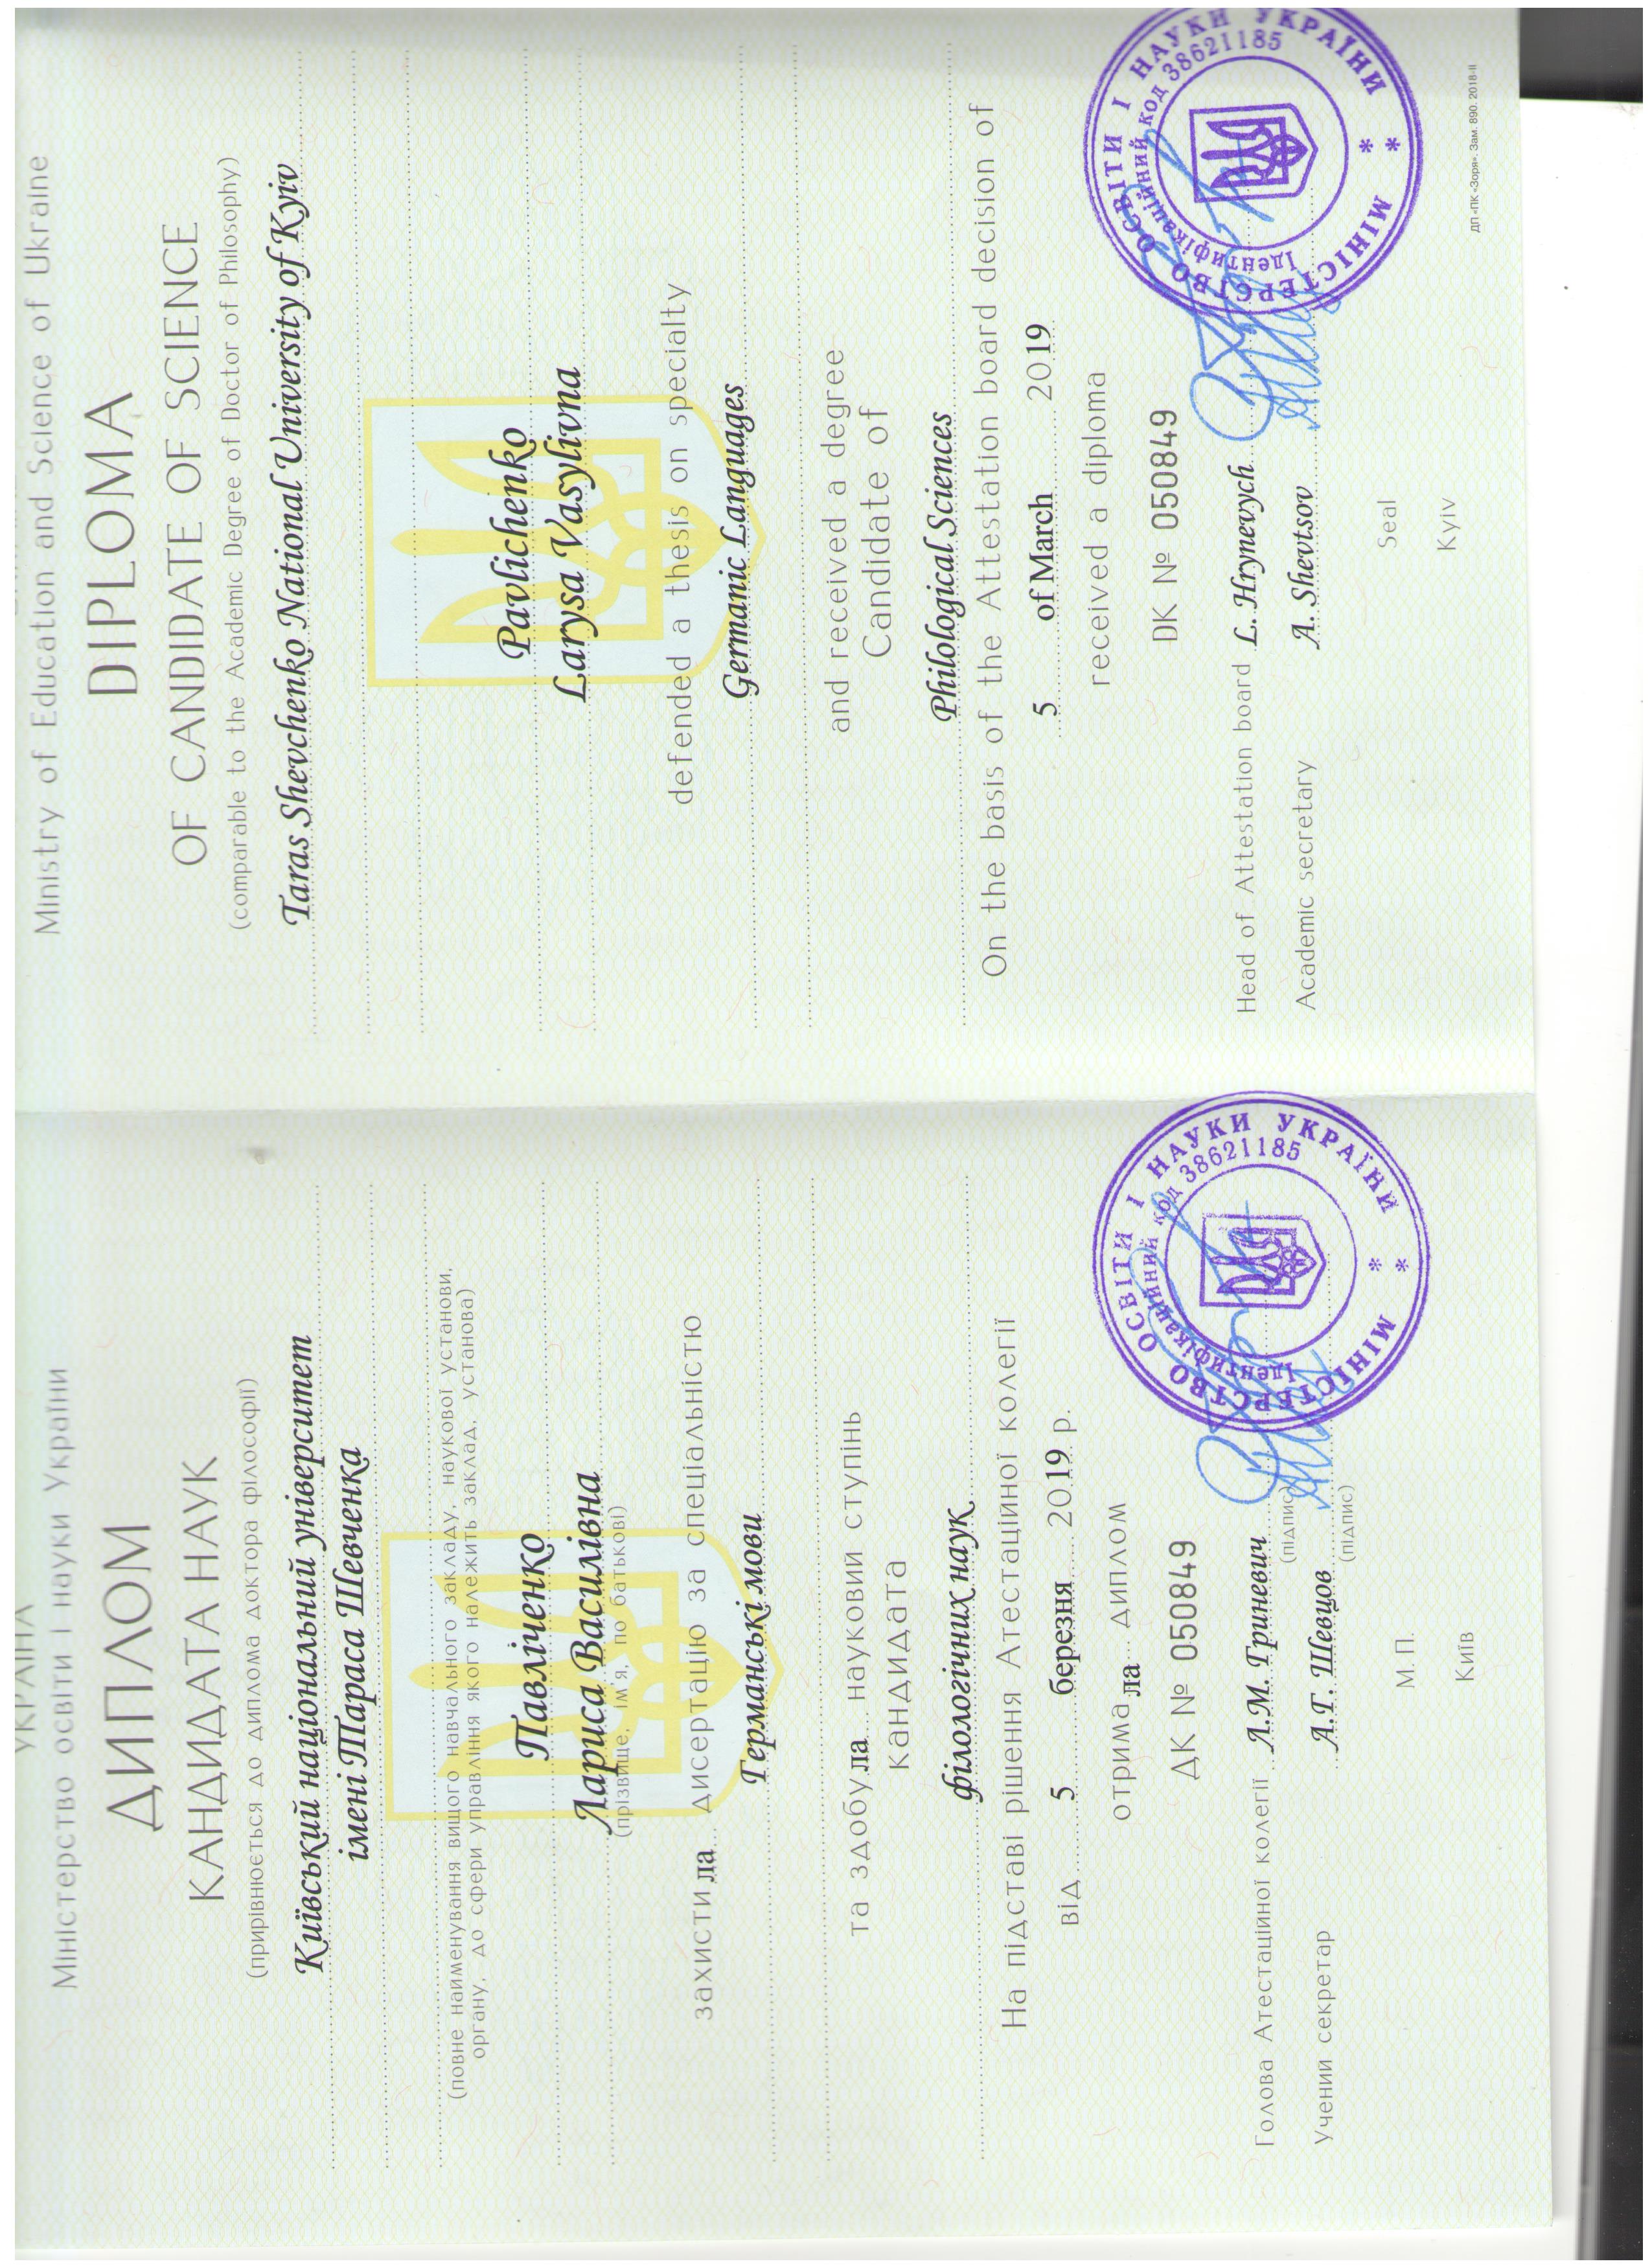 УКРАЇНА
Міністерство освіти і науки України
ДИПЛОМ
КАНДИДАТА НАУК
(прирівнюється до диплома доктора філософії)
Київський національний університет
імені Тараса Шевченка
(повне найменування вищого навчального закладу, наукової установи,
органу, до сфери управління якого належить заклад, установа)
Павліченко
Лариса Василівна
(прізвище, ім'я, по батькові)
захистила дисертацію за спеціальністю
Германські мови
та здобула науковий ступінь
кандидата
філологічних наук
На підставі рішення Атестаційної колегії
від 5 березня 2019 р.
отримала диплом
ДК № 050849
Голова Атестаційної колегії Л.М. Гриневич
(підпис)
Учений секретар А.Т. Шевцов
(підпис)
М.П.
Київ
МІНІСТЕРСТВО ОСВІТИ І НАУКИ УКРАЇНИ
Ідентифікаційний код 38621185
Ministry of Education and Science of Ukraine
DIPLOMA
OF CANDIDATE OF SCIENCE
(comparable to the Academic Degree of Doctor of Philosophy)
Taras Shevchenko National University of Kyiv
Pavlichenko
Larysa Vasylivna
defended a thesis on specialty
Germanic Languages
and received a degree
Candidate of
Philological Sciences
On the basis of the Attestation board decision of
5 of March 2019
received a diploma
DK № 050849
Head of Attestation board L. Hrynevych
Academic secretary A. Shevtsov
Seal
Kyiv
МІНІСТЕРСТВО ОСВІТИ І НАУКИ УКРАЇНИ
Ідентифікаційний код 38621185
ДП «ПК «Зоря». Зам. 890. 2018-ІІ